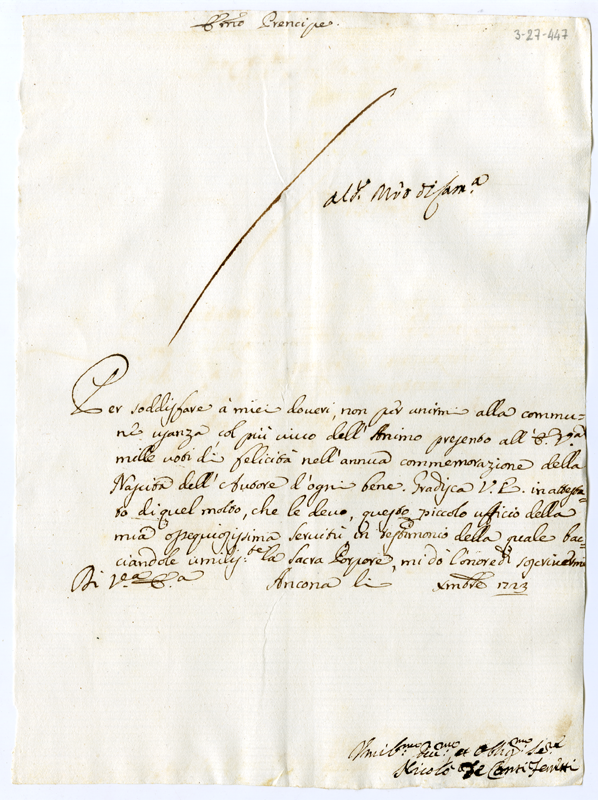 Em̃o Prencipe.
3-27-447
al S.r Mrõ di Cam.a
Per soddisfare à miei doveri, non per unirmi alla commu-
ne usanza col più vivo dell'Animo presento all'E. V.ra
mille voti di felicità nell'annua commemorazione della
Nascita dell'Autore d'ogni bene. Gradisca V. E. in attesta-
to di quel molto, che le devo, questo piccolo ufficio della
mia ossequiosissima servitù, in testimonio della quale bac-
ciandole umiliss.te la Sacra Porpora, mi dò l'onore di soscrivermi
Di V.ra E.a Ancona li Xmbre 1723
Umil.mo Div.mo et Oblig.mo Se.re
Nicolò de Conti